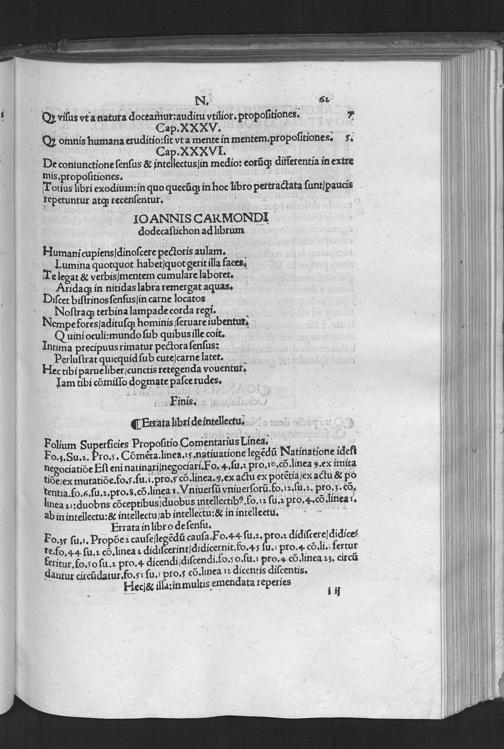 N. 62
Qꝫ visus vt a natura doceamur: auditu vtilior. propositiones. 7.
Cap.XXXV.
Qꝫ omnis humana eruditio: sit vt a mente in mentem. propositiones. 5.
Cap.XXXVI.
De coniunctione sensus & intellectus/in medio: eorūqꝫ differentia in extre
mis. propositiones.
Totius libri exodium: in quo quecūqꝫ in hoc libro pertractata sunt/paucis
repetuntur atqꝫ recensentur.
IOANNIS CARMONDI
dodecastichon ad librum
Humani cupiens/dinoscere pectoris aulam.
Lumina quotquot habet/quot gerit illa faces,
Te legat & verbis/mentem cumulare laboret.
Aridaqꝫ in nitidas labra remergat aquas.
Discet bistrinos sensus/in carne locatos
Nostraqꝫ terbina lampade corda regi.
Nempe fores/aditusqꝫ hominis/seruare iubentur,
Quini oculi: mundo sub quibus ille coit.
Intima precipuus rimatur pectora sensus:
Perlustrat quicquid sub cute/carne latet.
Hec tibi parue liber/cunctis retegenda vouentur.
Iam tibi cōmisso dogmate pasce rudes.
Finis.
¶Errata libri de intellectu.
Folium Superficies Propositio Comentarius Linea.
Fo.3.Su.2. Pro.5. Cōmēta.linea.15.natiuatione legēdū Natinatione idest
negotiatiōe Est eni natinari/negociari. Fo.4.su.2 pro.10.cō.linea 9.ex imita
tiōe/ex mutatiōe.fo.5.su.1.pro.5 cō.linea.9.ex actu ex potētia/ex actu & po
tentia.fo.6.su.2.pro.8.cō.linea 1.Vniuersū vniuersorū.fo.12.su.2. pro.3.cō.
linea 21: duobns cōceptibus/duobus intellectibꝰ.fo.12.su.2 pro.4.cō.linea 1.
ab in intellectu: & intellectu: ab intellectu: & in intellectu.
Errata in libro de sensu.
Fo.35 su.1. Propōe 2 cause/legēdū causa. Fo.44 su.2, pro.2 didiscere/didice
re.fo.44 su.2 cō.linea 2 didiscerint/didicernit.fo.45 su.1 pro.4 cō.li. fertur
feritur.fo.50 su.2 pro.4 dicendi/discendi.fo.50.su.1 pro.4 cō.linea 23. circū
dantur circūdatur.fo.51 su.1 pro.5 cō.linea 12 dicentis discentis.
Hec/& illa: in multis emendata reperies
i ij